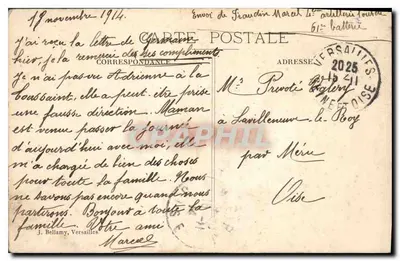 19 novembre 1914.
Envoi de Fraudin Marcel 4e artillerie lourde
61e batterie
CARTE POSTALE
J'ai reçu la lettre de Germaine
hier, je la remercie de ses compliments
CORRESPONDANCE
ADRESSE
Je n'ai pas vu Adrienne à la
Toussaint, elle a peut être prise
une fausse direction. Maman
est venue passer la journée
d'aujourd'hui avec moi, elle
m'a chargé de bien des choses
pour toute la famille. Nous
ne savons pas encore quand nous
partirons. Bonjour à toute la
famille. Votre ami
Marcel
J. Bellamy, Versailles
VERSAILLES
2025
15-11
SNE-ET-OISE
Mr Prevoté Valery
à Lavilleneuve le Roy
par Méru
Oise